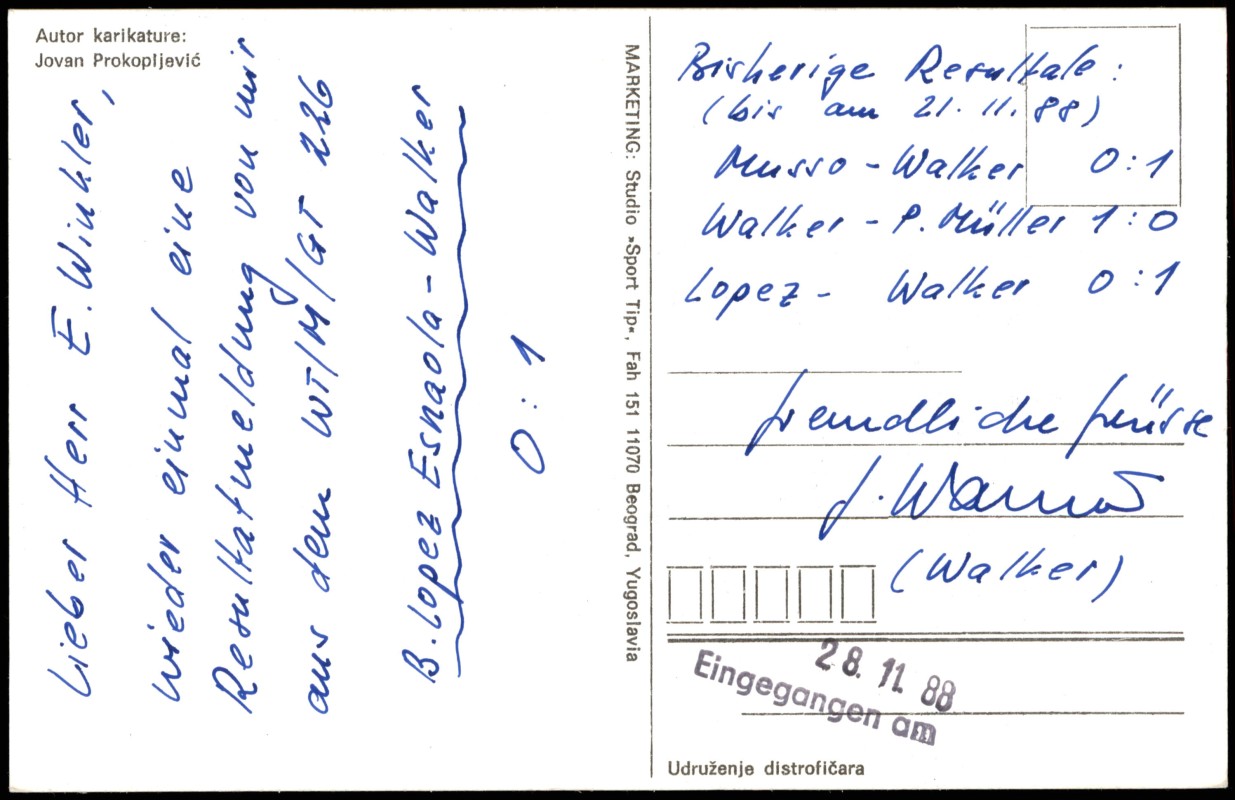 Autor karikature:
Jovan Prokopljević
Lieber Herr E. Winkler,
wieder einmal eine
Resultatmeldung von mir
aus dem WT/M/GT 226
B. Lopez Esnaola - Walker
0 : 1
MARKETING: Studio »Sport Tip«, Fah 151 11070 Beograd, Yugoslavia
Bisherige Resultate :
(bis am 21. 11. 88)
Musso - Walker 0 : 1
Walker - P. Müller 1 : 0
Lopez - Walker 0 : 1
freundliche Grüsse
J.
(Walker)
28. 11. 88
Eingegangen am
Udruženje distrofičara